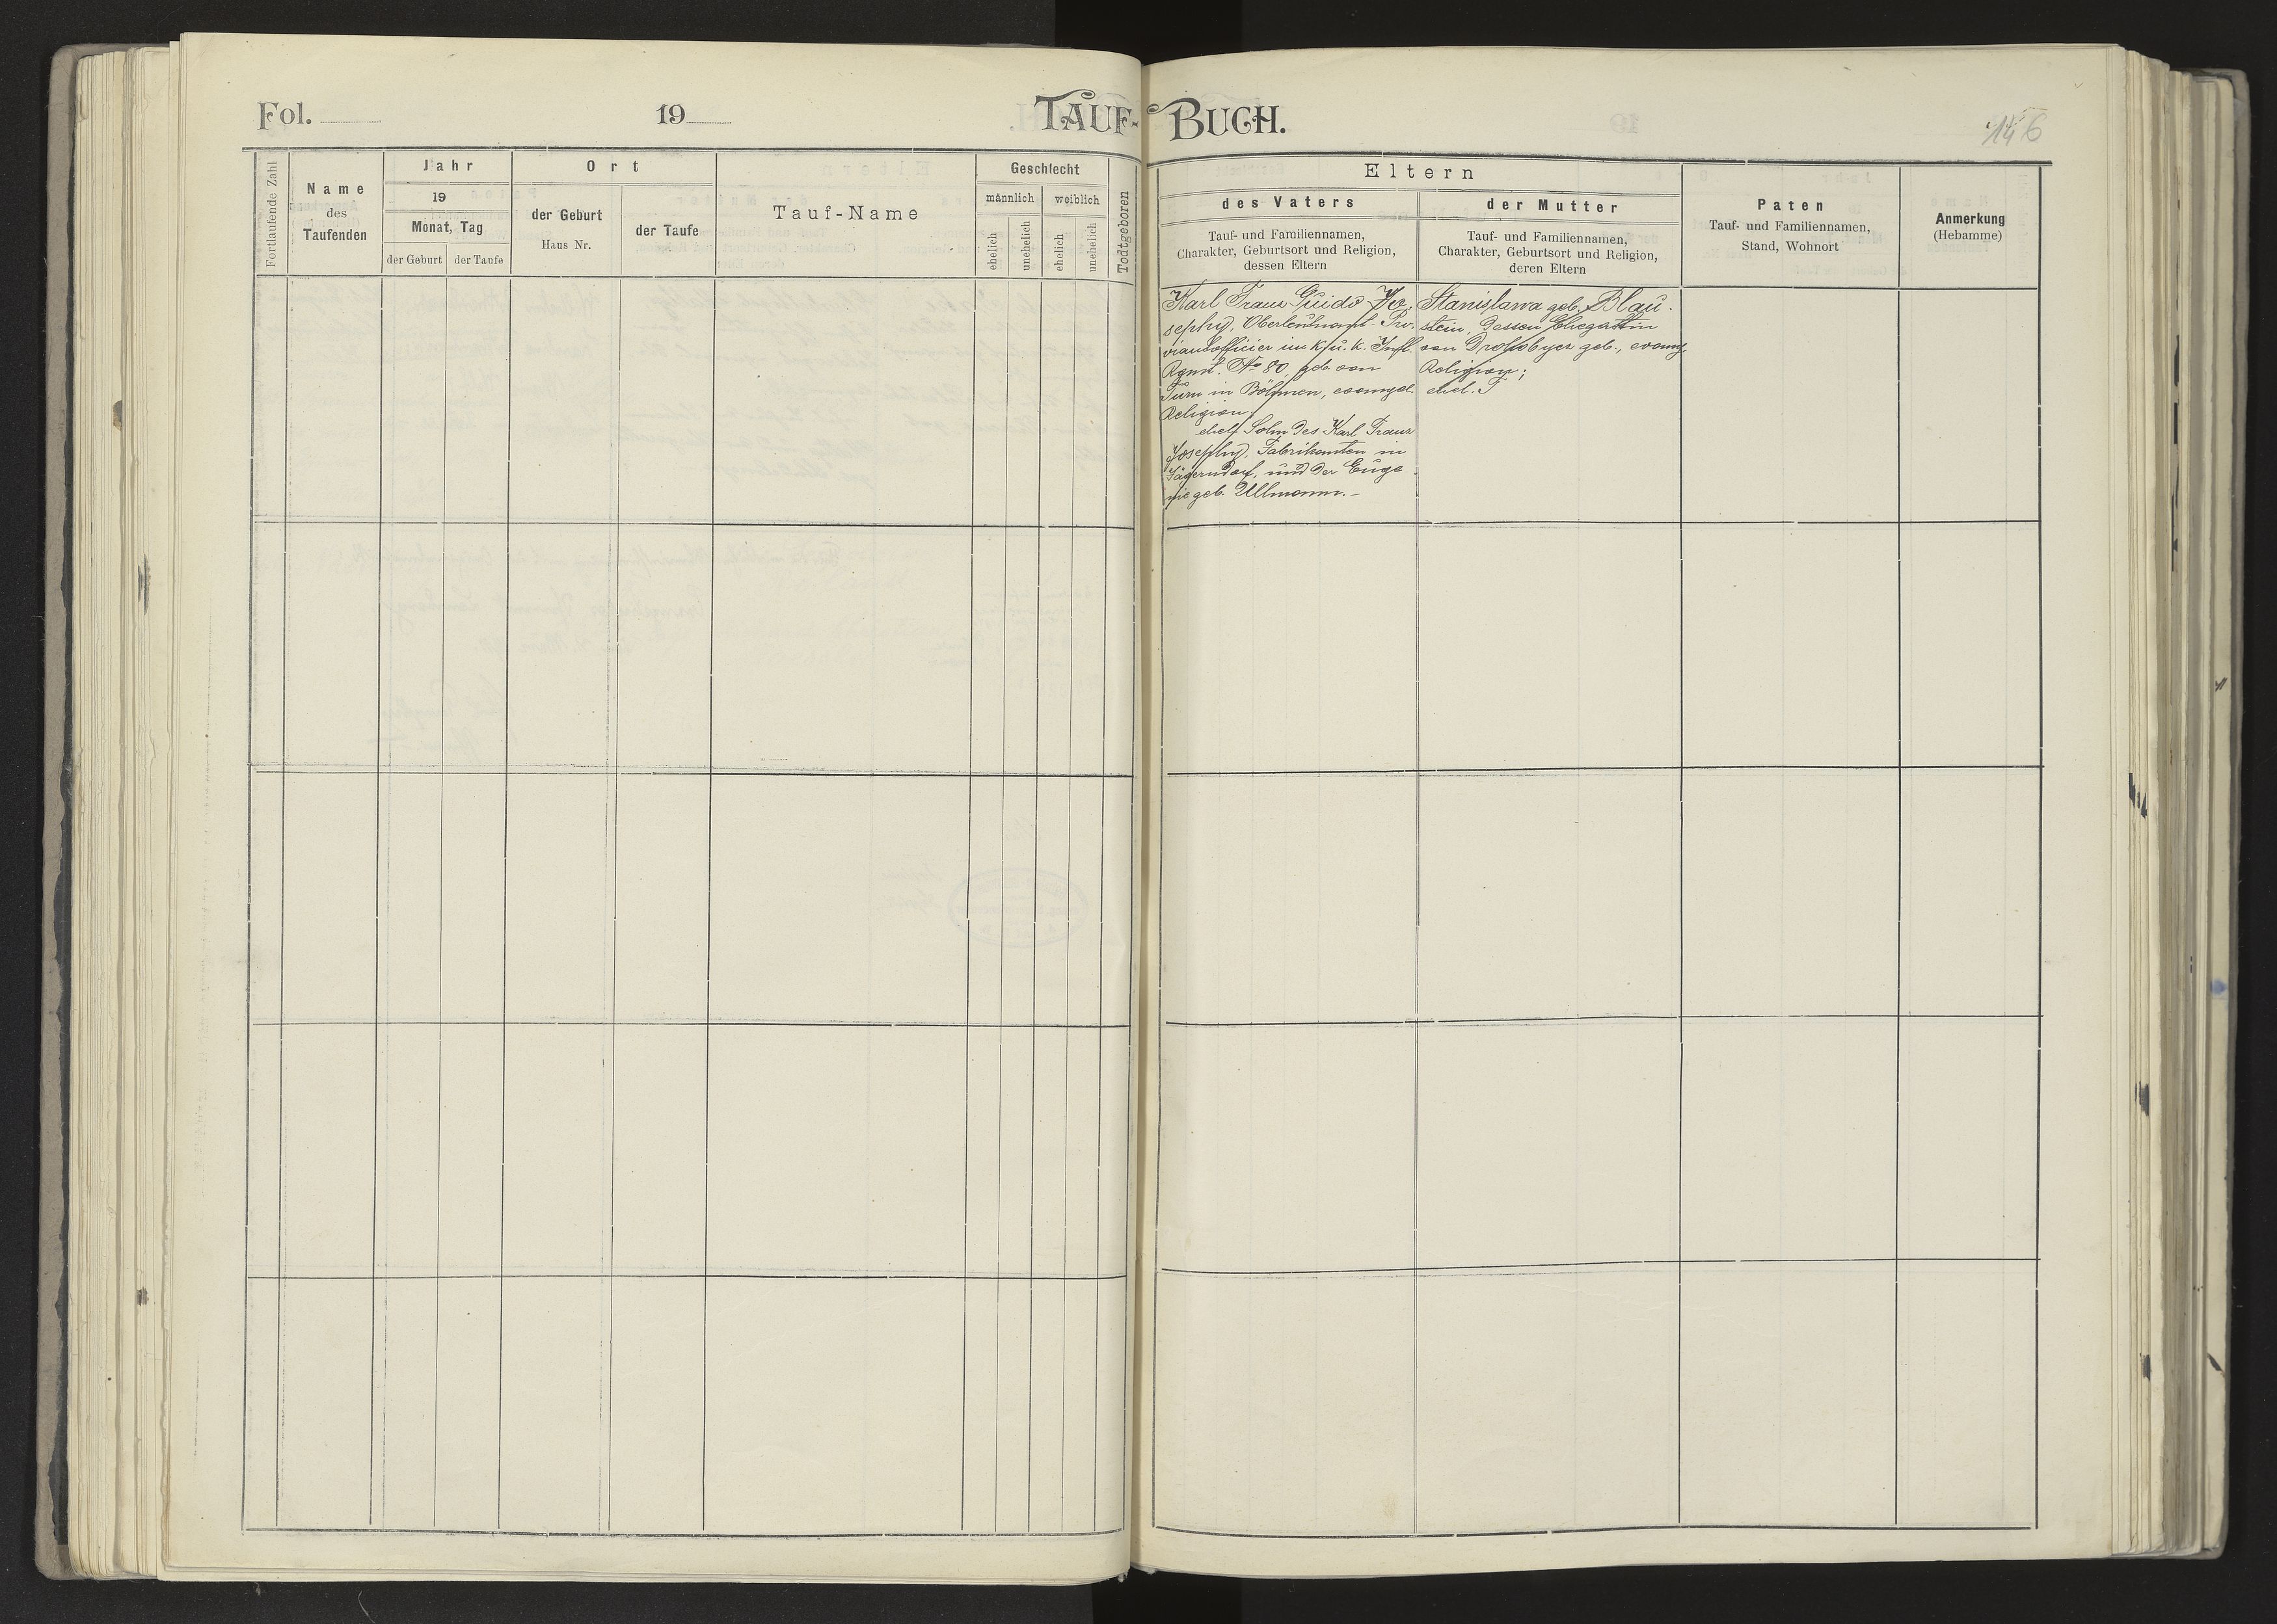 Fol.
19
TAUF-BUCH.
146
Fortlaufende Zahl
Name
des
Taufenden
Jahr
19
Monat, Tag
der Geburt
der Taufe
Ort
der Geburt
Haus Nr.
der Taufe
Tauf-Name
Geschlecht
männlich
weiblich
ehelich
unehelich
ehelich
unehelich
Todtgeboren
Eltern
des Vaters
Tauf- und Familiennamen,
Charakter, Geburtsort und Religion,
dessen Eltern
der Mutter
Tauf- und Familiennamen,
Charakter, Geburtsort und Religion,
deren Eltern
Paten
Tauf- und Familiennamen,
Stand, Wohnort
Anmerkung
(Hebamme)
Karl Franz Guido Jo-
sephy, Oberleutnant-Pro-
viantofficier im k. u. k. Inft.
Rgmt. No 80, geb. von
Turn in Böhmen, evangel.
Religion;
ehel. Sohn des Karl Franz
Josephy, Fabrikanten in
Jägerndorf, und der Euge
nie geb. Ullmann.-
Stanislawa geb. Blau-
stein, dessen Ehegattin
von Drohobycz geb., evang.
Religion;
ehel. T